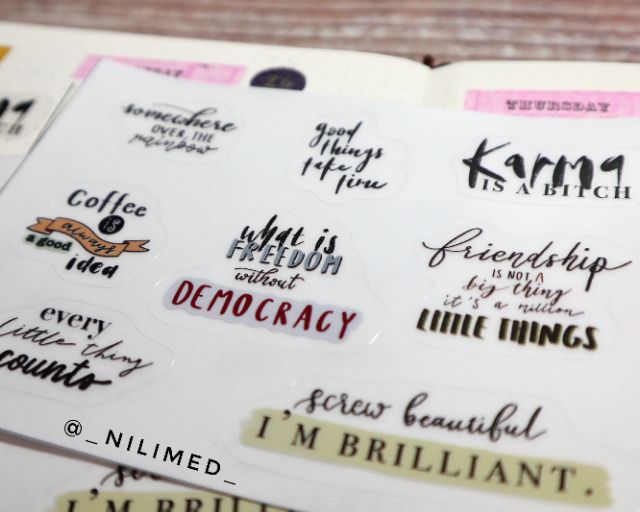 THURSDAY
somewhere
OVER THE
rainbow
good
things
take
time
Karma
IS A BITCH
Coffee
IS
always
a good
idea
what is
FREEDOM
without
DEMOCRACY
friendship
IS NOT A
big thing
it's a million
LITTLE THINGS
every
little thing
counts
screw beautiful
I'M BRILLIANT.
@_NILIMED_
I'M BRILLIANT